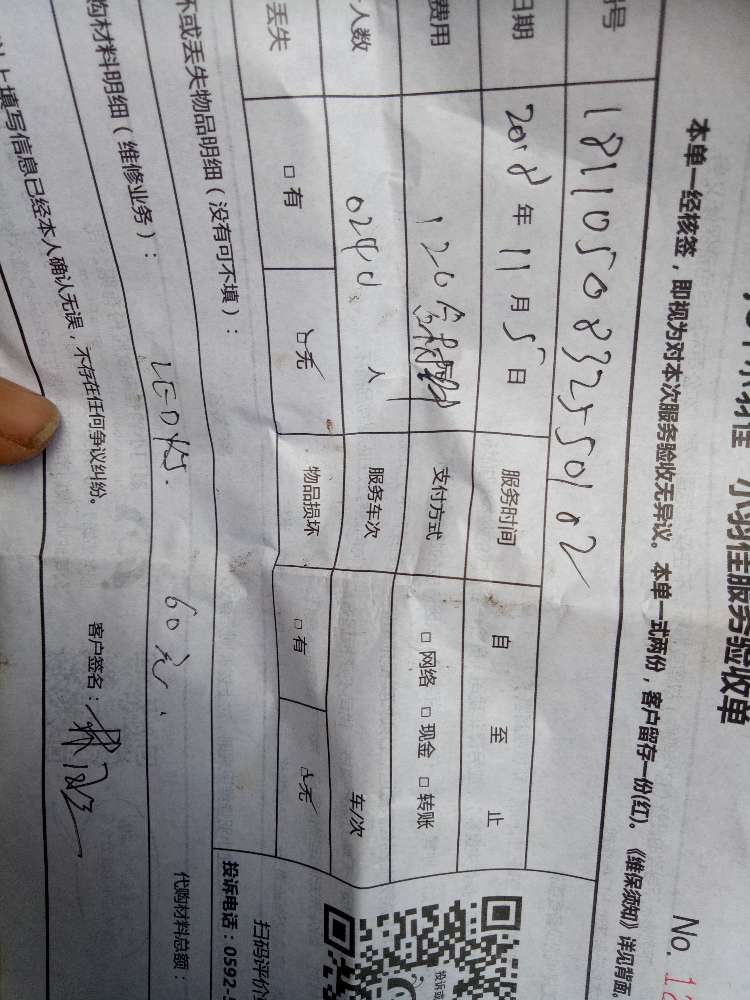 小羽佳服务验收单
No. 12
本单一经核签，即视为对本次服务验收无异议。本单一式两份，客户留存一份(红)。《维保须知》详见背面。
号 1811050832550102
日期 2018年11月5日 服务时间 自 至 止
费用 120 支付方式 □网络 □现金 □转账
人数 人 服务车次 车/次
丢失 □有 □无 物品损坏 □有 □无
坏或丢失物品明细（没有可不填）：
扫码评价
投诉电话：0592-
购材料明细（维修业务）： LED灯. 60元.
代购材料总额：
以上填写信息已经本人确认无误，不存在任何争议纠纷。
客户签名：